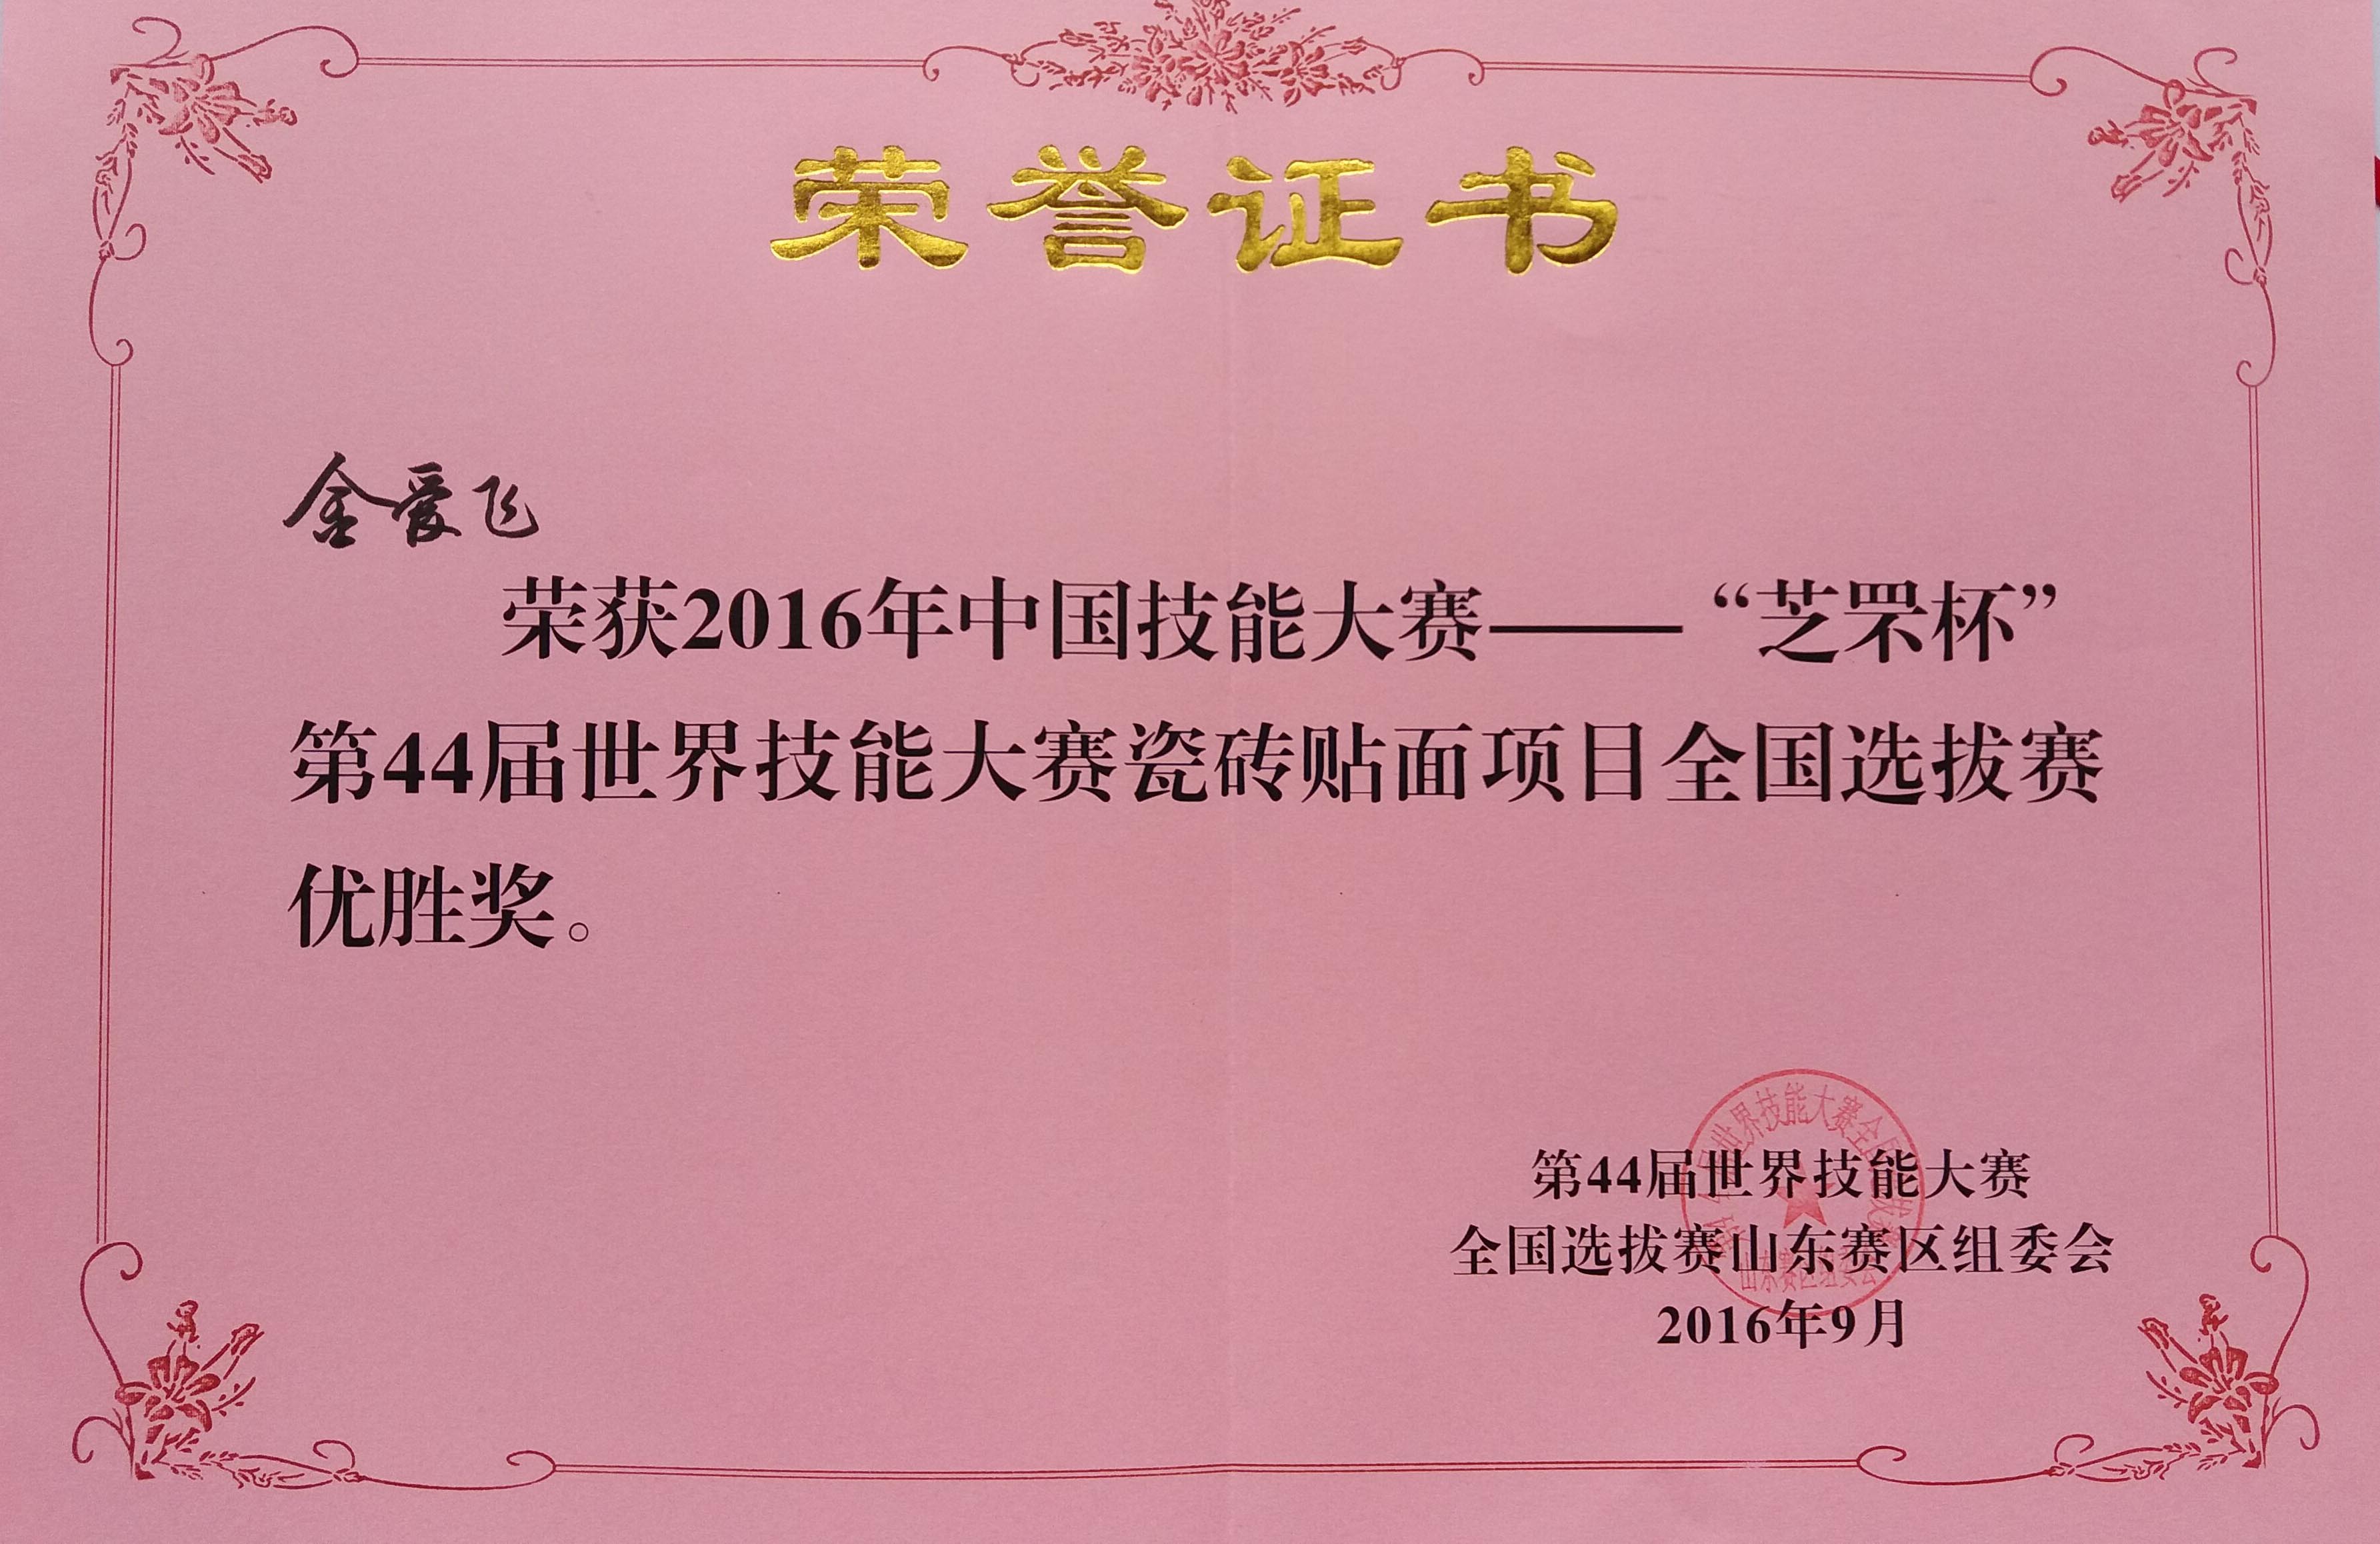 荣誉证书
金爱飞
荣获2016年中国技能大赛——“芝罘杯”
第44届世界技能大赛瓷砖贴面项目全国选拔赛
优胜奖。
第44届世界技能大赛
全国选拔赛山东赛区组委会
2016年9月
世界技能大赛全国
山东赛区组委会